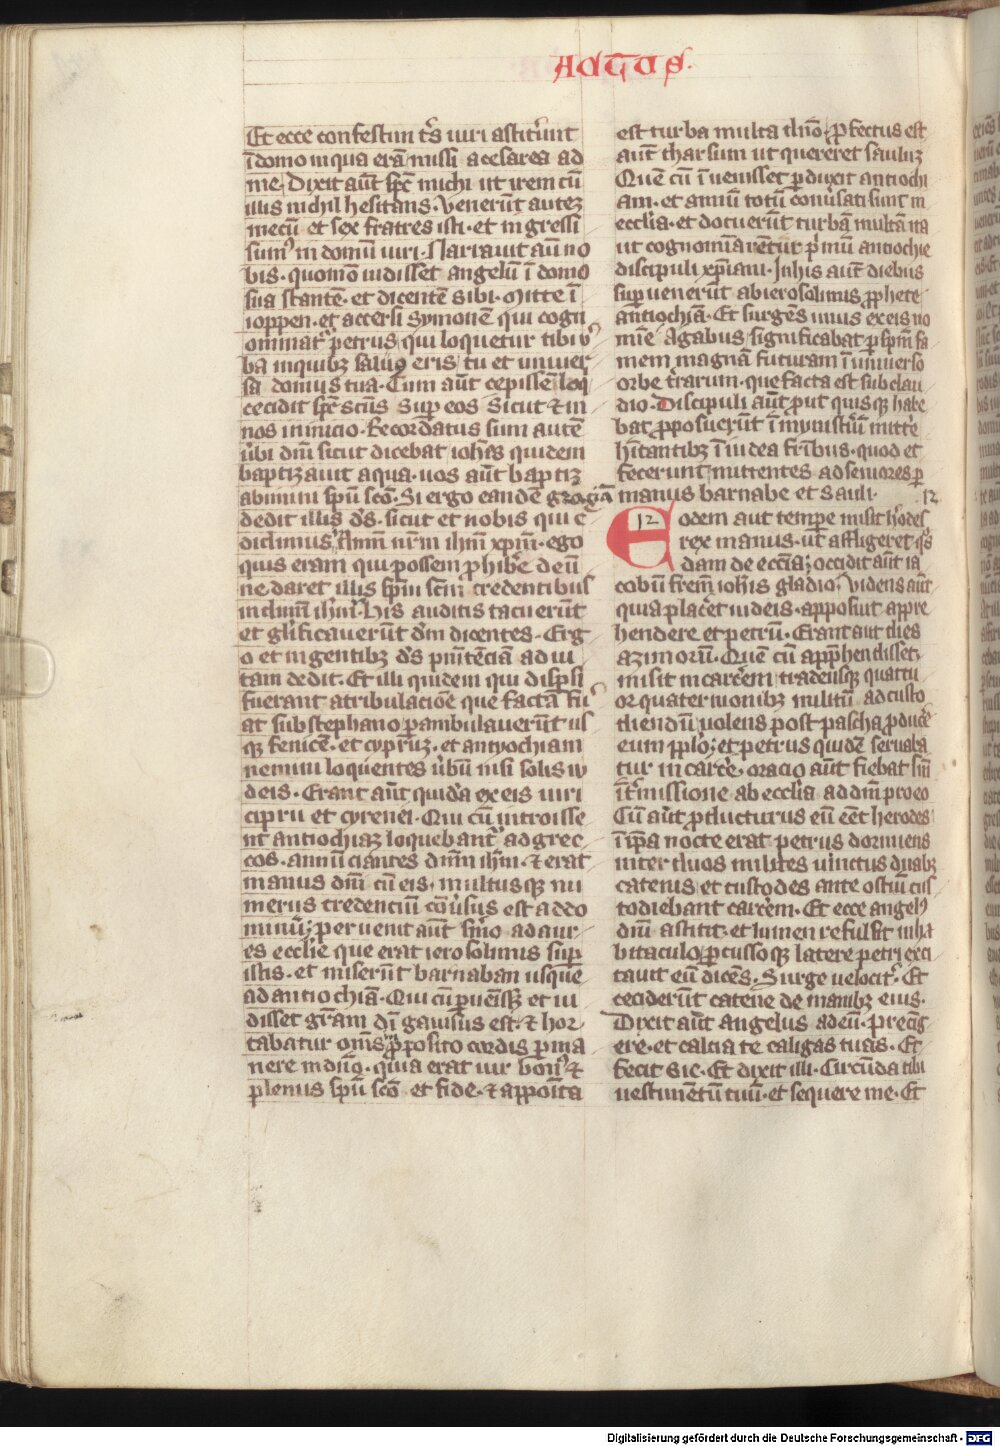 Actus.
Et ecce confestim t͛s uiri astiter̄unt
ī domo in qua erā missi a cesarea ad
me. Dixit aūt sp̄c michi ut irem cū
illis nichil hesitans. Venerūt autez
mecū et sex fratres isti. et ingressi
sumꝰ in domū uiri. Narrauit aū no
bis. quomō uidisset angelū ī domo
sua stantē. et dicentē sibi. Mitte ī
ioppen. et accersi Symonē qui cogn
ominat᷑ petrus, qui loquetur tibi v͛
ba in quibꝫ saluꝰ eris, tu et uniuer
sa domus tua. Cum aūt cepissē loq͛
cecidit sp̄c sc̄us Sup̱ eos Sicut ⁊ in
nos in inicio. Recordatus sum autē
u͛bi dn̄i sicut dicebat ioh̄es quidem
baptizauit aqua. uos aūt baptiz
abimini sp̄u sc̄o. Si ergo eandē graciā
dedit illis d͛s. sicut et nobis qui c͛
didimus in dn̄m nr̄m ihm̄ xp̄m. ego
quis eram qui possem ꝓhibe͛ deū
ne daret illis sp̄m sc̄m credentibus
in dn̄m ihm̄. His auditis tacuerūt
et gl͛ificauerūt d͛m dicentes. Erg
o et in gentibꝫ d͛s penitēciā ad ui
tam dedit. Et illi quidem qui disp̱si
fuerant a tribulacione que facta fu͛
at sub stephano p̱ambulauerūt us
qꝫ fenicē. et cypruꝫ. et antyochiam
nemini loquentes u͛bū nisi solis iu
deis. Erant aūt quidā ex eis uiri
ciprii et cyrenei. Qui cū introisse
nt antiochiaꝫ loquebant᷑ ad grec
cos. annūciantes dn̄m ihm̄. ⁊ erat
manus dn̄i cū eis. multusqꝫ nu
merus credenciū cōu͛sus est ad do
minū; peruenit aūt s͛mo ad aur
es ecclīe que erat ierosolimis sup̱
istis. et miserūt barnaban usque
ad antiochiā. Qui cū p̱uenissꝫ et ui
disset gr̄am dī gauisus est. ⁊ hor
tabatur om̄s in ꝓposito cordis p̱ma
nere in dn̄o. quia erat uir bonꝰ ⁊
plenus sp̄u sc̄o et fide. ⁊ apposita
est turba multa dn̄o. Profectus est
aūt tharsum ut quereret sauluꝫ
Quē cū īuenisset p̱duxit antiochi
am. et annū totū conu͛sati sunt in
ecclīa. et docuerūt turbā multā ita
ut cognominarētur p̱mū antiochie
discipuli xp̄iani. In his aūt diebus
sup̱uenerūt ab ierosolimis ꝓphete
antiochiā. Et surgēs unus ex eis no
mīe agabus, significabat p̱ sp̄m fa
mem magnā futuram ī uniuerso
orbe t͛rarum. que facta est sub clau
dio. Discipuli aūt ꝓut quisqꝫ habe
bat ꝓposuerūt ī mynist͛iū mitte͛
hītantibꝫ ī iudea fr̄ibus. quod et
fecerunt, mittentes ad seniores p̱
manus barnabe et Sauli. 12
12 Eodem aut tempe misit h͛odes
rex manus. ut affligeret q͛s
dam de ecclīa; occidit aūt ia
cobū frēm ioh̄is gladio. Videns aūt
quia placet iudeis. apposuit appre
hendere et petrū. Erant aut dies
azimorū. Quē cū appr̄hendisset;
misit in carc͛em, tradensqꝫ quattu
or quaternionibꝫ militū ad custo
diendū, uolens post pascha ꝓduce͛
eum pp̄lo; et petrus quidē seruaba
tur in carce͛. oracio aūt fiebat sin̄
īt͛missione ab ecclīa ad dm̄ pro eo
Cū aūt ꝓducturus eū eēt herodes
ī ip̄a nocte erat petrus dormiens
inter duos milites uinctus duabꝫ
catenis et custodes ante ostiū cus
todiebant carc͛em. Et ecce angelꝰ
dn̄i astitit. et lumen refulsit in ha
bitaculo, p̱cussoqꝫ latere petri exci
tauit eū dicēs. Surge uelocit᷑. Et
ceciderūt catene de manibꝫ eius.
Dixit aūt angelus ad eū. Precīg
ere. et calcia te caligas tuas. Et
fecit sic. Et dixit illi. Circūda tibi
uestimentū tuū. et sequere me. Et
Digitalisierung gefördert durch die Deutsche Forschungsgemeinschaft - DFG